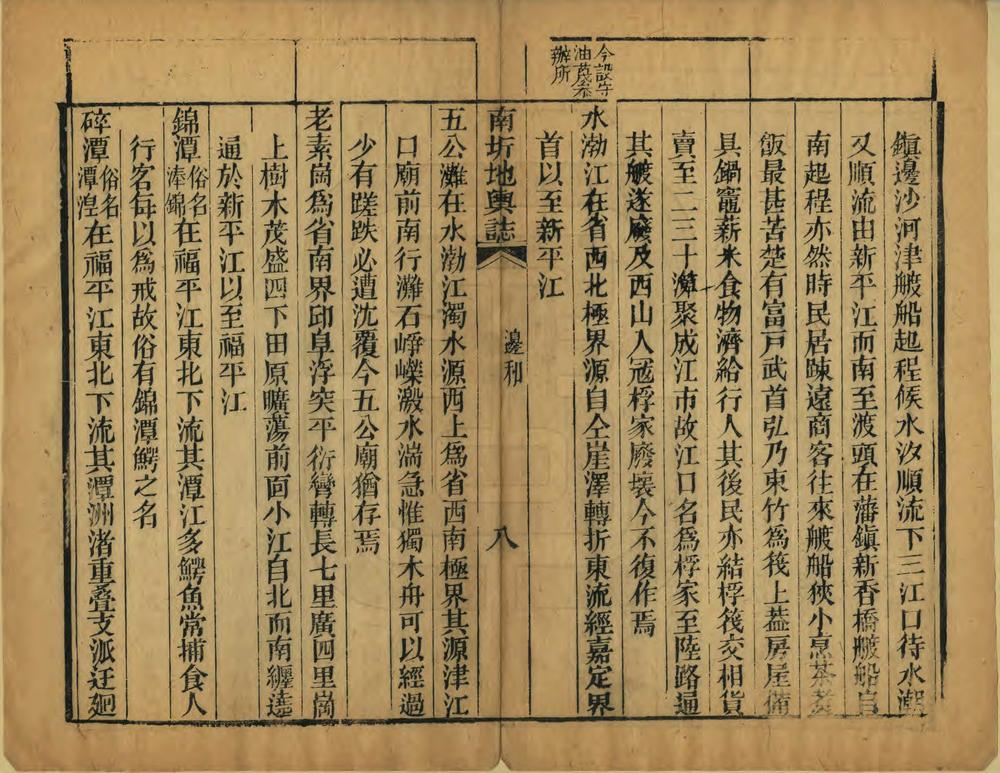 今設守
油葚柰
辦所
鎭邊沙河津艘船起程候水汐順流下三江口待水潮
又順流由新平江而南至渡頭在藩鎭新香橋艘船自
南起程亦然時民居踈遠商客往來艘船狹小烹茶
飯最甚苦楚有富戸武首弘乃束竹爲筏上葢房屋備
具鍋竈薪米食物濟給行人其後民亦結桴筏交相貨
賣至二三十簰聚成江市故江口名爲桴家至陸路通
其艘遂廢及西山入冦桴家廢壞今不復作焉
水渤江在省西北極界源自仝崖澤轉折東流經嘉定界
首以至新平江
南圻地輿誌 邊和 八
五公灘在水渤江濁水源西上爲省西南極界其源津江
口廟前南行灘石崢嶸激水湍急惟獨木舟可以經過
少有蹉跌必遭沈覆今五公廟猶存焉
老素崗爲省南界卬阜浮突平衍彎轉長七里廣四里崗
上樹木茂盛四下田原曠蕩前面小江自北而南纒遶
通於新平江以至福平江
錦潭俗名湊錦在福平江東北下流其潭江多鰐魚常捕食人
行客每以爲戒故俗有錦潭鰐之名
碎潭俗名潭湼在福平江東北下流其潭洲渚重疊支派迂廻